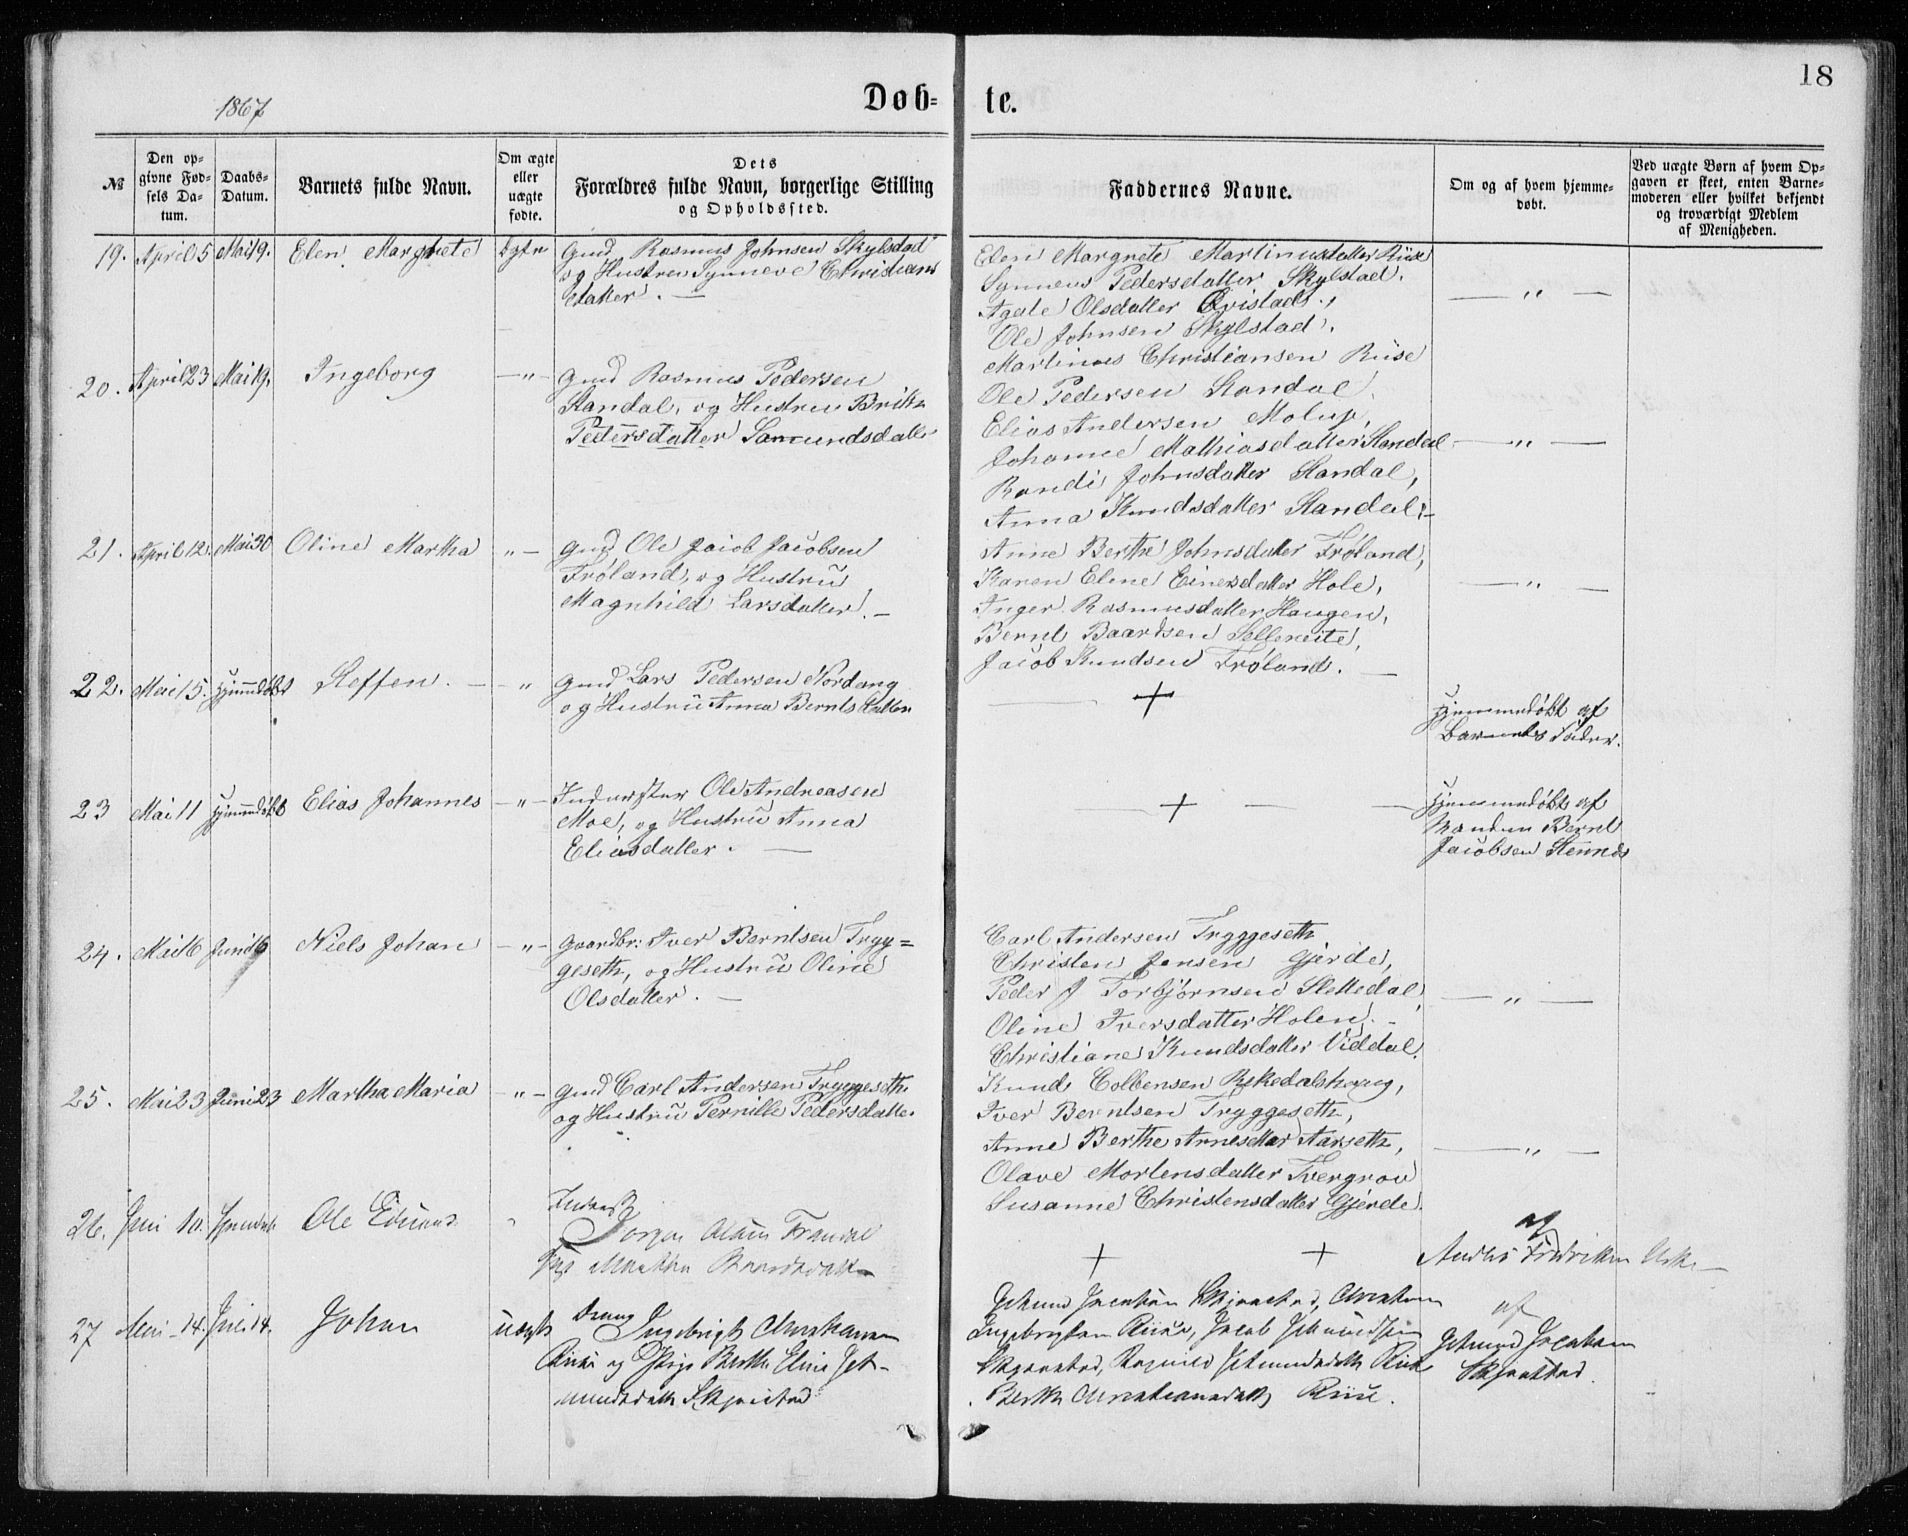 18
1867
Døb-
te.
№
Den op-
givne Fød-
sels Da-
tum.
Daabs-
Datum.
Barnets fulde Navn.
Om ægte
eller
uægte
fødte.
Dets
Forældres fulde Navn, borgerlige Stilling
og Opholdssted.
Faddernes Navne.
Om og af hvem hjemme-
døbt.
Ved uægte Børn af hvem Op-
gaven er skeet, enten Barne-
moderen eller hvilket bekjendt
og troværdigt Medlem
af Menigheden.
19. April 5 Mai 19. Elen Margrete ægte Gmd Rasmus Johnsen Skylstad
og Hustru Synneve Christians
datter. —
Elen Margrete Martinusdatter Riise
Synneve Pedersdatter Skylstad.
Agate Olsdatter Qvistad,
Ole Johnsen Skylstad.
Martinus Christiansen Riise
— " —
20. April 23 Mai 19. Ingeborg — " — Gmd Rasmus Pedersen
Standal, og Hustru Brithe
Pedersdatter Samundsdatter
Ole Pedersen Standal,
Elias Andersen Molup,
Johanne Mathiasdatter Standal
Randi Johnsdatter Standal,
Anna Knudsdatter Standal. —
— " —
21. April 12. Mai 30 Oline Martha " — Gmd Ole Jacob Jacobsen
Frøland, og Hustru
Magnhild Larsdatter. —
Anne Berthe Johnsdatter Frøland,
Karen Eline Einersdatter Hole,
Inger Rasmusdatter Haugen,
Bernt Baardsen Selleneite,
Jacob Knudsen Frøland. —
— " —
22. Mai 15. Hjemmedøbt Steffen. — " Gmd Lars Pedersen Nordang
og Hustru Anna Berntsdatter
— +
Hjemmedøbt af
Barnets Fader.
23 Mai 11 Hjemmedøbt Elias Johannes — " — Inderster Ole Andreasen
Moe, og Hustru Anna
Eliasdatter. —
— + — —
Hjemmedøbt af
Manden Bernt
Jacobsen Stennes
24. Mai 16 Juni 16 Niels Johan — " — Gaardbr: Iver Berntsen Tryg=
geseth, og Hustru Oline
Olsdatter. —
Carl Andersen Tryggeseth
Christen Jensen Gjerde,
Peder J Torbjørnsen Slettedal,
Oline Iversdatter Holen. —
Christiane Knudsdatter Viddal.
— " —
25. Mai 23 Juni 23 Martha Maria — " — Gmd Carl Andersen Tryggeseth
og Hustru Pernille Pedersdatter
Knud Colbensen Rekedalshaug,
Iver Berntsen Tryggeseth,
Anne Berthe Arnesdatter Aarseth,
Olave Mortensdatter Tvergrov
Susanne Christensdatter Gjerde.
— " —
26. Juni 10. Ole Eduard "
Jorgen Olsen Frandal
Martha
+ +
af
Anders Fredriksen
27 Mai 14. Juli 14. Johan uægte Dreng Ingebrigt Christiansen
Riise og Pige Berthe Eline Jet-
mundsdatter Skjaastad
Jetmund Jacobsen Skjaastad,
Ingebrigtsen Riise, Jacob Jetmundsen
Skjaastad, Ragnild Jetmundsdatter Riise
Berthe Christiansdatter Riise.
af
Jetmund Jacobsen
Skjaastad.